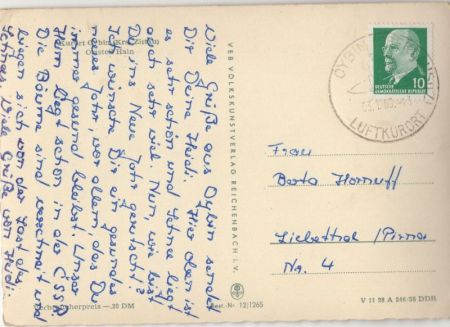 Kurort Oybin (Krs. Zittau)
Ortsteil Hain
Viele Grüße aus Oybin sendet
Dir Deine Heidi. Hier oben ist
es sehr schön und Schnee liegt
auch sehr viel. Nun, wie bist
Du ins Neue Jahr gerutscht?
Ich wünsche Dir ein gesundes
neues Jahr, vor allem, das Du
immer gesund bleibst. Unser
Heim liegt schon in der ČSSR
Die Bäume sind verschneit und
biegen sich von der Last des
Schnees. Viele Grüße von Heidi.
Verbraucherpreis —,20 DM
VEB VOLKSKUNSTVERLAG REICHENBACH I. V.
Best.-Nr. 12/1265
DEUTSCHE
DEMOKRATISCHE REPUBLIK
10
OYBIN
LUFTKURORT
Frau
Berta
Liebethal/Pirna
Nr. 4
V 11 28 A 246/65 DDR